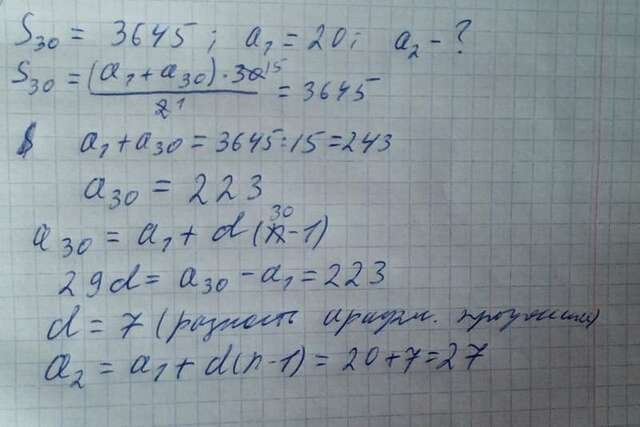 S₃₀ = 3645; a₁ = 20; a₂ - ?
S₃₀ = (a₁ + a₃₀) · 30 15 / 2 1 = 3645
a₁ + a₃₀ = 3645 : 15 = 243
a₃₀ = 223
a₃₀ = a₁ + d (n 30 - 1)
29d = a₃₀ - a₁ = 223
d = 7 (разность арифм. прогрессии)
a₂ = a₁ + d(n-1) = 20 + 7 = 27